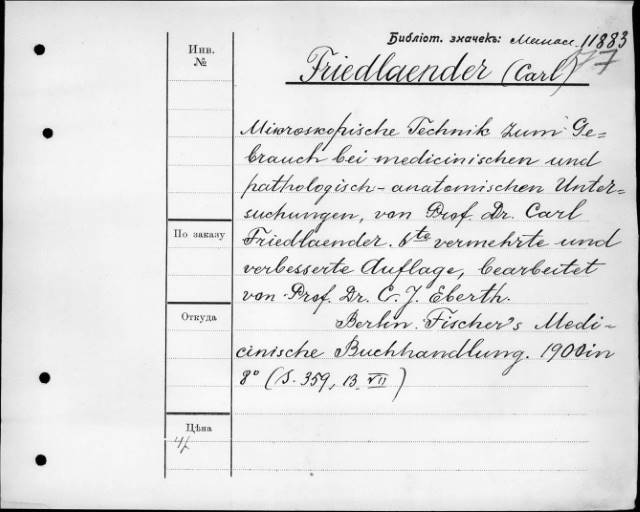 Библіот. значекъ: 11883
Инв.
№
Friedlaender (Carl)
7
Mikroskopische Technik zum Ge=
brauch bei medicinischen und
pathologisch-anatomischen Unter=
suchungen, von Prof. Dr. Carl
По заказу
Friedlaender. 6te vermehrte und
verbesserte Auflage, bearbeitet
von Prof. Dr. C. J. Eberth.
Откуда
Berlin. Fischer's Medi-
cinische Buchhandlung. 1900 in
8° (S. 359, 13 VII)
Цѣна